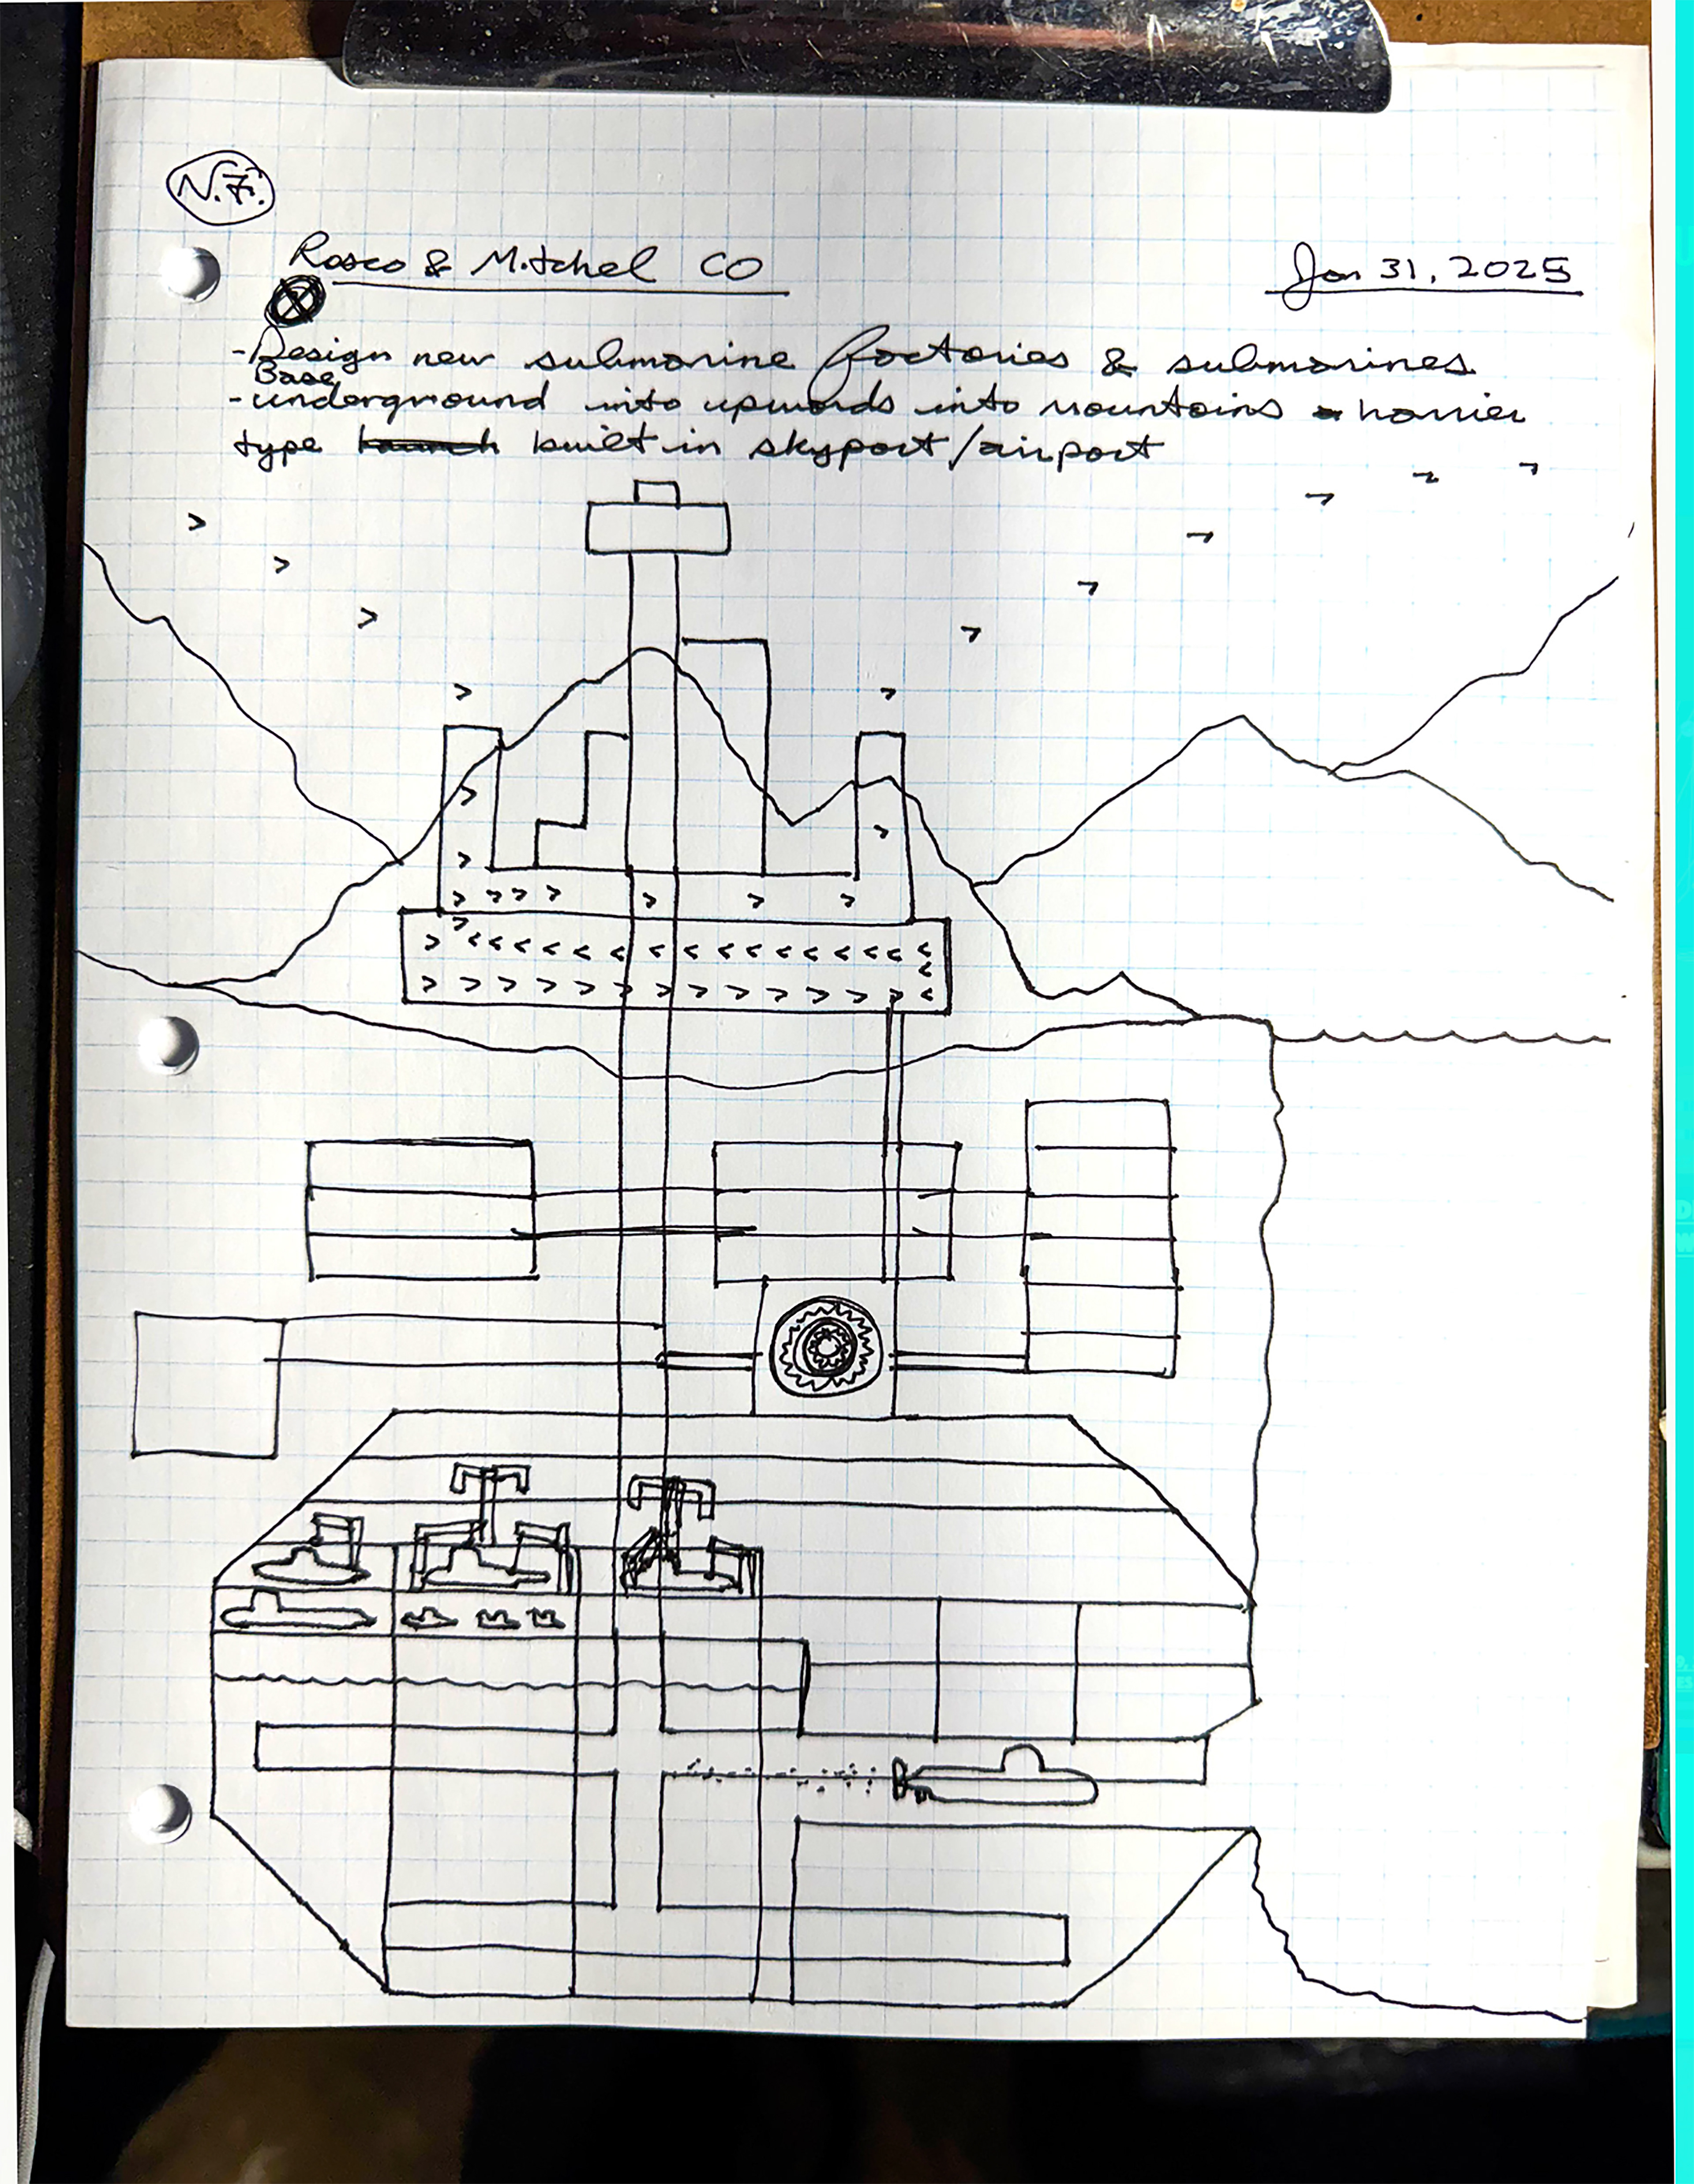 N.F.
Rosco & Mitchel CO
Jan 31, 2025
- Design new submarine factories & submarines
Base
- underground into upwards into mountains harrier
type launch built in skyport/airport